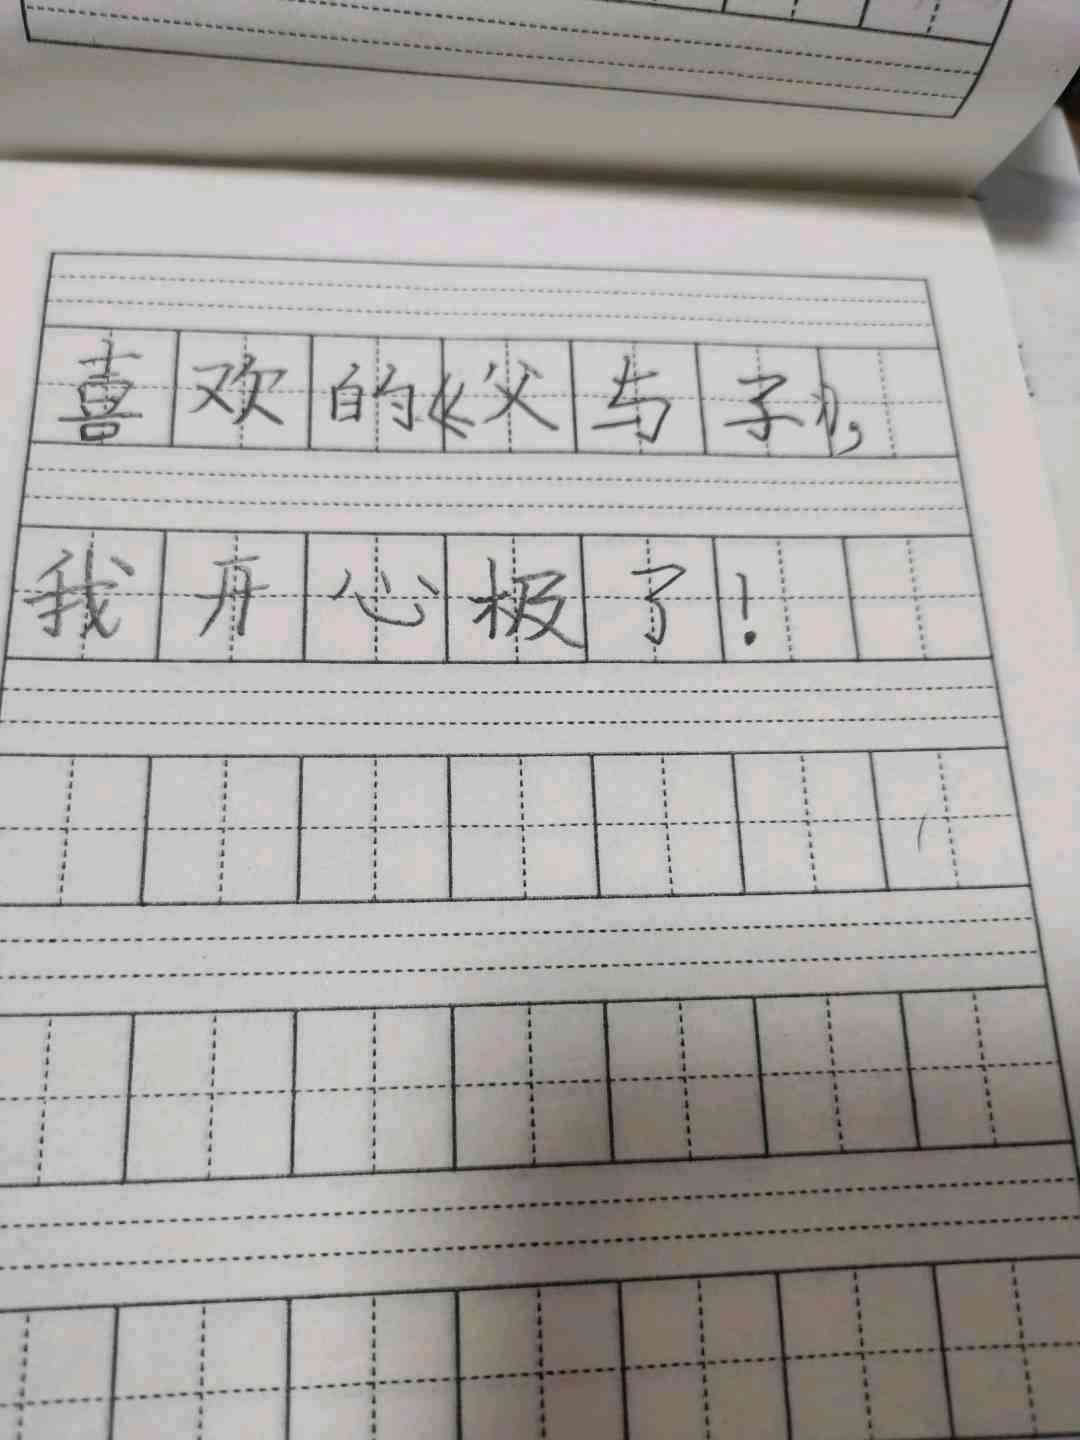 喜欢的《父与子》,
我开心极了!